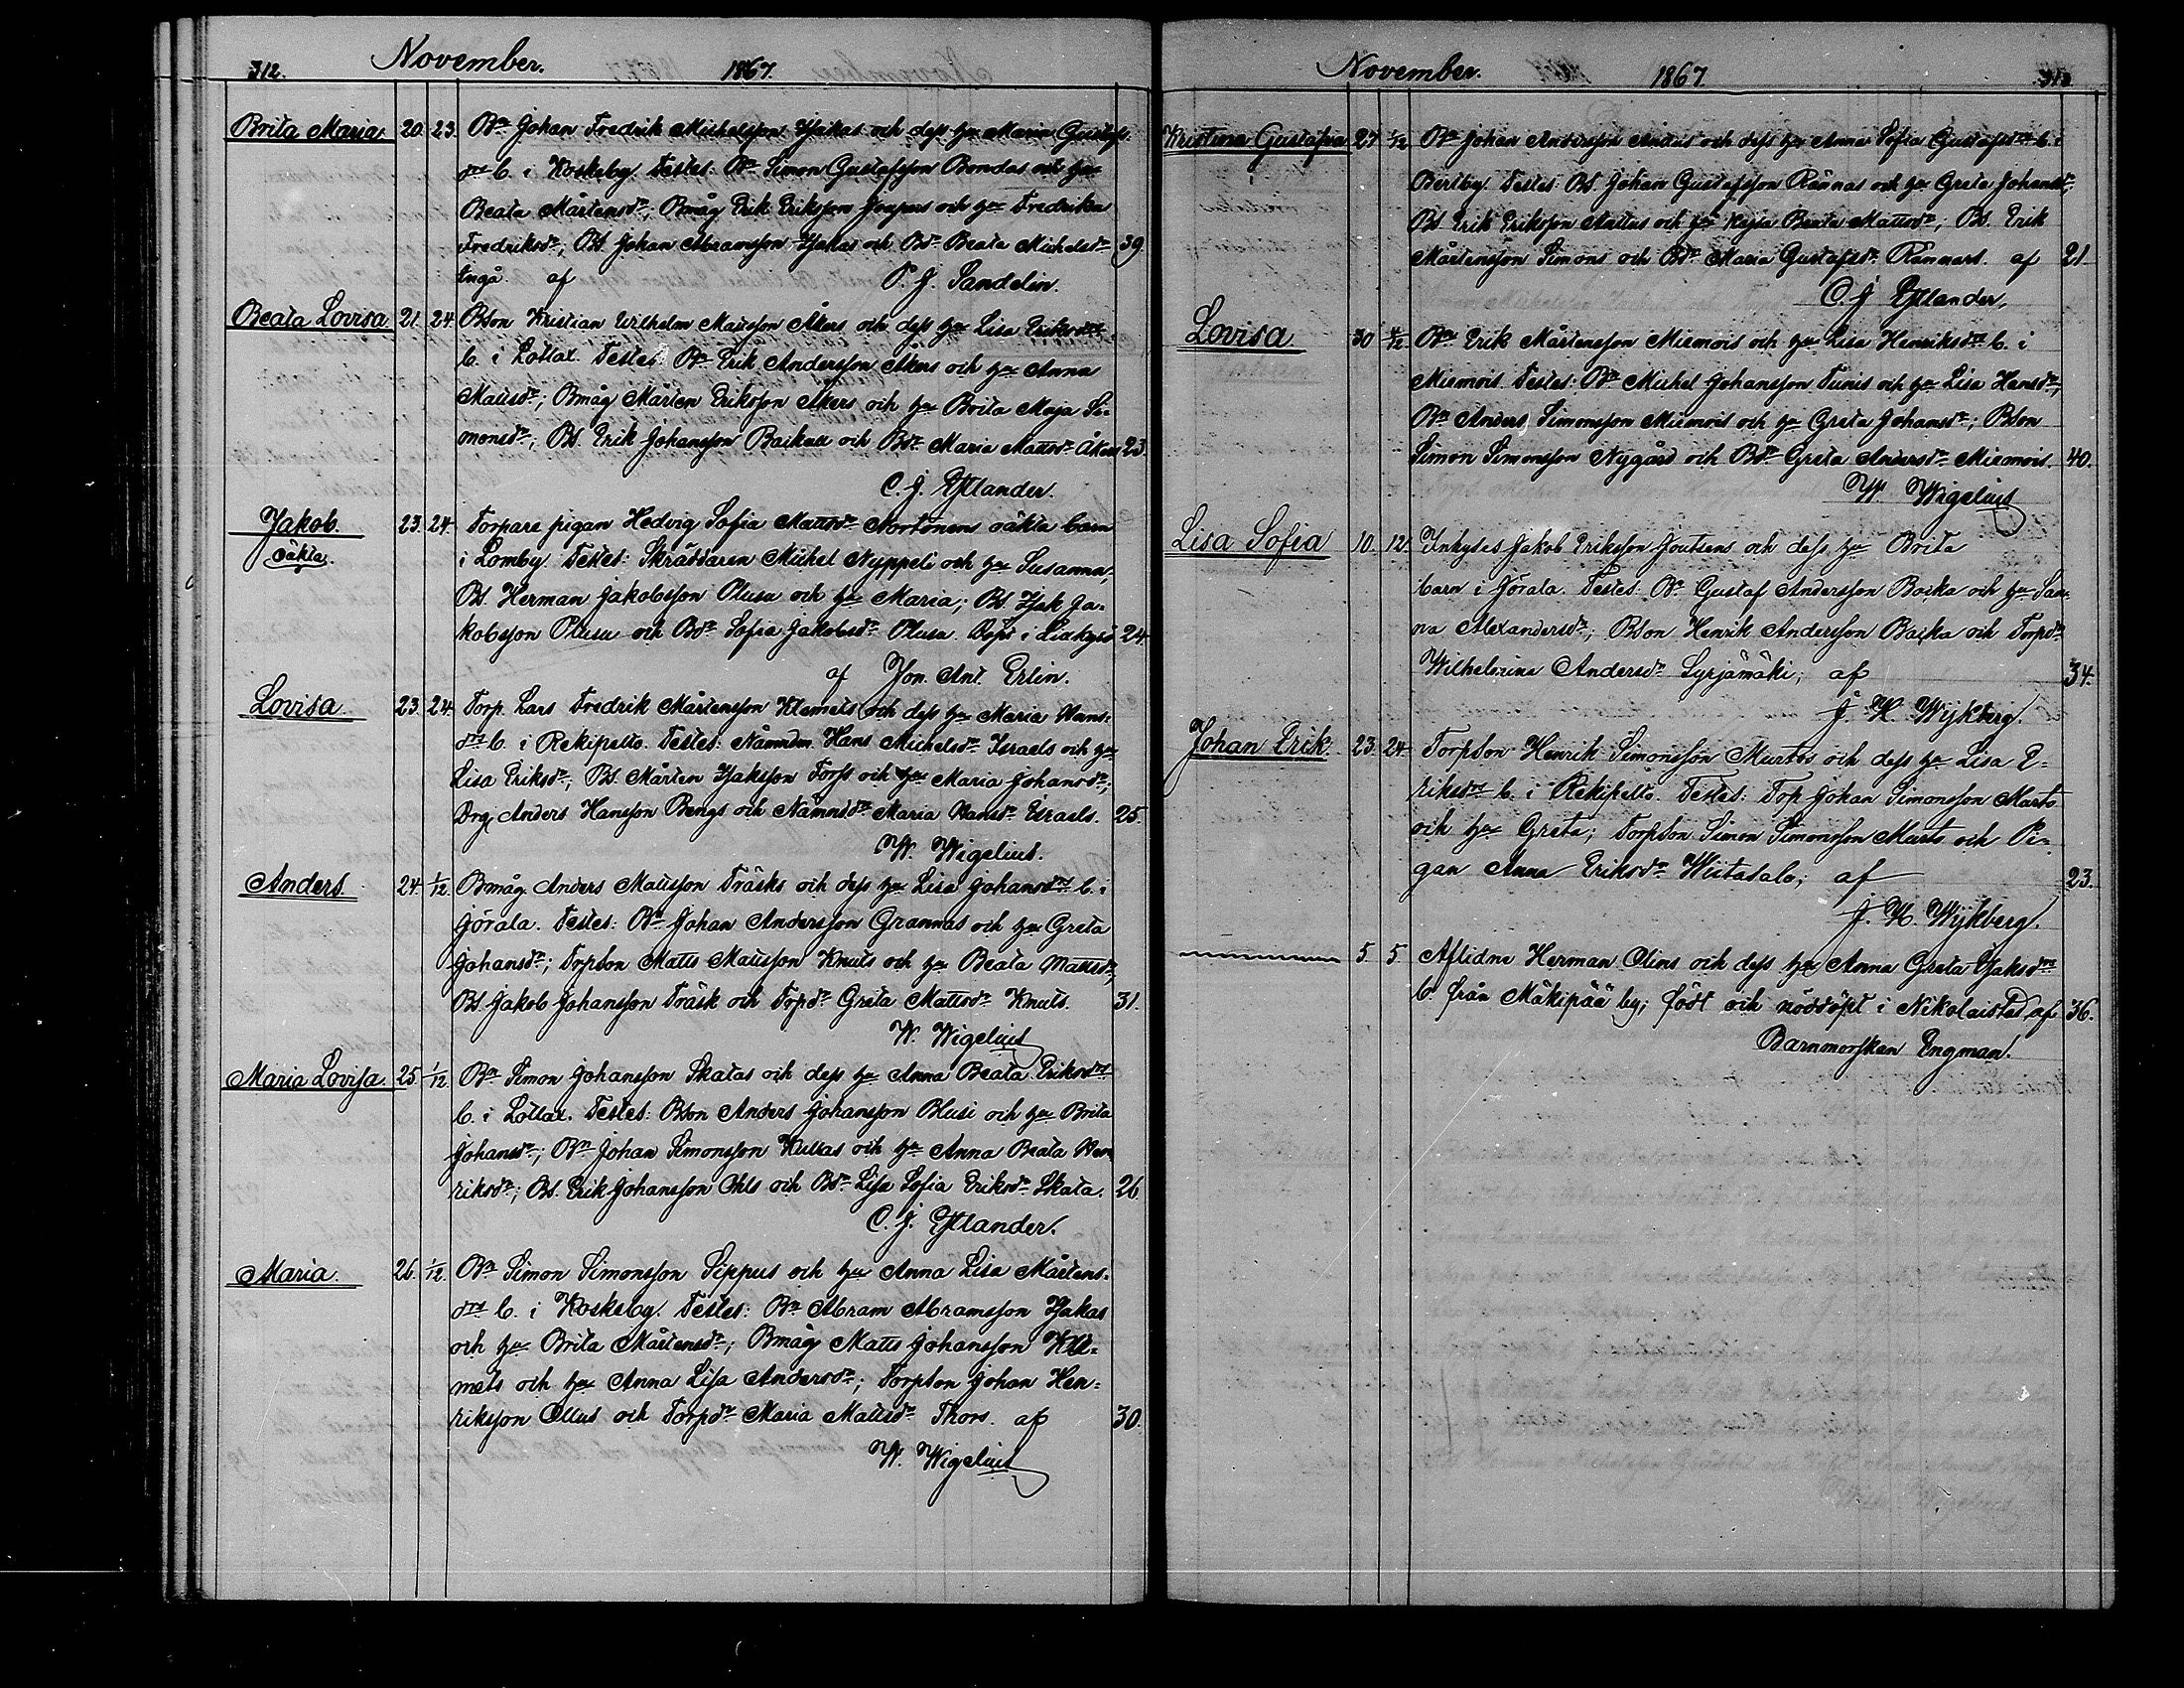 312. November. 1867.
Brita Maria 20. 23. Bn Johan Fredrik Michelsson Hjakas och dess hu Maria Gustafs
drs b. i Koskeby. Testes: Bn Simon Gustafsson Bondas och hu
Beata Mårtensdr; Bmåg Erik Eriksson Jospers och hu Fredrika
Fredriksdr; BS. Johan Abramsson Hjakas och Bdr Beata Michelsdr 39.
Ingå. af P. J. Sandelin.
Beata Lovisa 21. 24. BSon Kristian Wilhelm Mattsson Åkers och dess hu Lisa Eriksdrs
b. i Lottax. Testes: Bn Erik Andersson Åkers och hu Anna
Mattsdr; Bmåg Mårten Eriksson Åkers och hu Brita Maja Si-
monsdr; BS. Erik Johansson Baikull och Bdr Maria Mattsdr Åkers 23.
C. J. Estlander.
Jakob. 23. 24. Torpare pigan Hedvig Sofia Mattsdr Nortonens oäkta barn
oäkta. i Lomby. Testes: Skräddaren Michel Nyppeli och hu Susanna;
BS. Herman Jakobsson Olusa och hu Maria; BS. Isak Ja-
kobsson Olusa och Bdr Sofia Jakobsdr Olusa. Döpt i Liukyrö 24.
af Jon. Ant. Erlin.
Lovisa. 23. 24. Torp. Lars Fredrik Mårtensson Klemets och dess hu Maria Hans-
drs b. i Rekipelto. Testes: Nämndm. Hans Michelsdr Israels och hu
Lisa Eriksdr; BS. Mårten Isaksson Torss och hu Maria Johansdr;
Drg Anders Hansson Bengs och Nämndsdr Maria Hansdr Israels. 25.
W. Wigelius.
Anders. 24. 1/12. Bmåg Anders Mattsson Träsks och dess hu Lisa Johansdrs b. i
Jörala. Testes: Bn Johan Andersson Grannas och hu Greta
Johansdr; TorpSon Matts Mattsson Knuts och hu Beata Mattsdr;
BS. Jakob Johansson Träsk och Torpdr Greta Mattsdr Knuts. 31.
W. Wigelius
Maria Lovisa. 25. 1/12. Bn Simon Johansson Skatas och dess hu Anna Beata Eriksdrs
b. i Lottax. Testes: BSon Anders Johansson Blusi och hu Brita
Johansdr; Bn Johan Simonsson Kullas och hu Anna Beata Hen
riksdr; BS. Erik Johansson Ohls och Bdr Lisa Sofia Eriksdr Skata. 26.
C. J. Estlander.
Maria. 26. 1/12. Bn Simon Simonsson Sippus och hu Anna Lisa Mårtens-
drs b. i Koskeby. Testes: Bn Abram Abramsson Hjakas
och hu Brita Mårtensdr; Bmåg Matts Johansson Kle-
mets och hu Anna Lisa Andersdr; TorpSon Johan Hen-
riksson Ollus och Torpdr Maria Mattsdr Thors. af 30.
W. Wigelius
November. 1867. 313.
Kristina Gustafva 27. 1/12 Bn Johan Andersson Anttus och dess hu Anna Sofia Gustafsdrs b. i
Bertby. Testes BS. Johan Gustafsson Rännas och hu Greta Johansdr;
BS. Erik Eriksson Anttus och hu Kajsa Beata Mattsdr; BS. Erik
Mårtensson Simons och Bdr Maria Gustafsdr Rännars. af 21.
C. J. Estlander.
Lovisa 30 4/12. Bn Erik Mårtensson Miemois och hu Lisa Henriksdrs b. i
Miemois. Testes: Bn Michel Johansson Tunis och hu Lisa Hansdr;
Bn Anders Simonsson Miemois och hu Greta Johansdr; BSon
Simon Simonsson Nygård och Bdr Greta Andersdr Miemois. 40.
W. Wigelius
Lisa Sofia 10. 12. Inhyses Jakob Eriksson Joutsens och dess hu Brita
barn i Jörala. Testes: Bn Gustaf Andersson Backa och hu San-
na Alexandersdr; BSon Henrik Andersson Backa och Torpdr
Wilhelmina Andersdr Syrjämäki; af 34.
J. H. Wijkberg.
Johan Erik. 23. 24. TorpSon Henrik Simonsson Murtos och dess hu Lisa E-
riksdrs b. i Rekipelto. Testes: Torp Johan Simonsson Murto
och hu Greta; TorpSon Simon Simonsson Murto och Pi-
gan Anna Eriksdr Wiitasalo; af 23.
J. H. Wijkberg.
5. 5. Aflidne Herman Olins och dess hu Anna Greta Isaksdrs
b. från Mäkipää by; född och nöddöpt i Nikolaistad af 36.
Barnmorskan Engman.